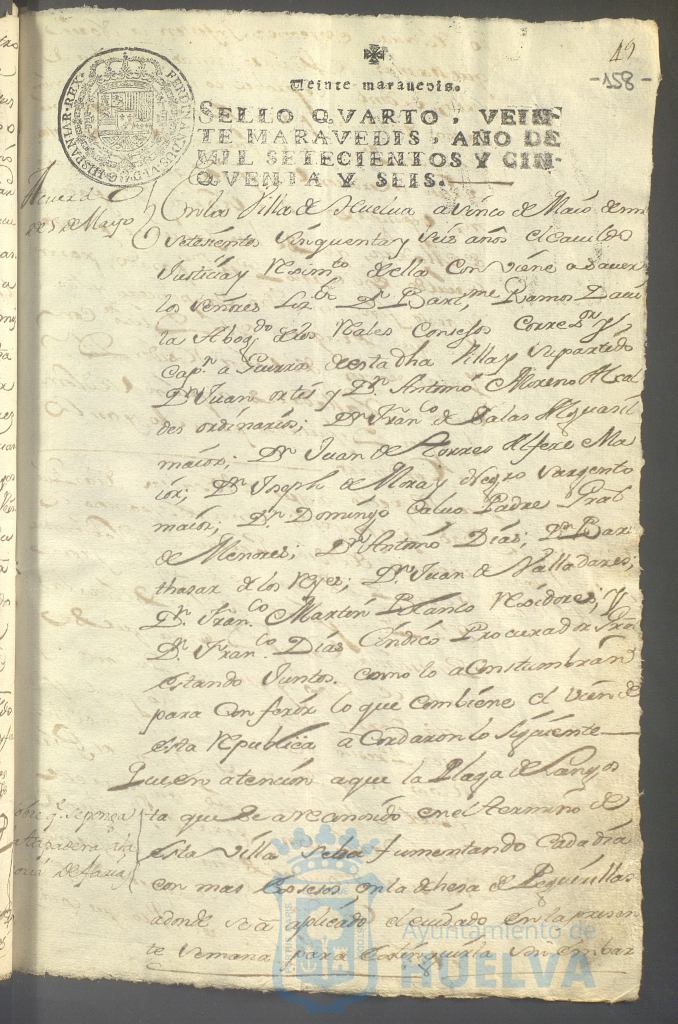 49
-158-
FERDINANDUS VI D G HISPANIAR REX
Veinte maravedis.
SELLO QVARTO, VEIN-
TE MARAVEDIS, AÑO DE
MIL SETECIENTOS Y CIN-
QVENTA Y SEIS.
Acuerdo
de 5 de Mayo
En la Villa de Huelva a sinco de Maio de mil
setesientos sinquenta y seis años el Cavildo
Justicia y Resimto. de ella Conviene a saver
los señores Lizdo. Dn. Bartme. Ramos Davi
la Abogdo. de los Reales Consejos Corredor. y
Capn. a Guerra de esta dha Villa y su partido
Dn. Juan ortis y Dn. Antonio Moreno Alcal
des ordinarios; Dn. Franco. de Salas Alguasil
maior; Dn. Juan de Torres Alferes Ma
ior; Dn. Joseph de Mora y Negro sargento
maior; Dn. Domingo Calvo Padre Gral
de Menores; Dn. Antonio Dias; Dn. Bal
thasar de los Reyes; Dn. Juan de Valladares;
Dn. Franco. Martin Blanco Residores; y
Dn. Franco. Dias Cindico Procurador Gral
estando Juntos como lo aConstumbran
para Conferir lo que Combiene el vien de
esta Republica aCordaron lo Siguiente
Que en atención a que la Plaga de Langos
ta que se a reconosido en el termino de
esta villa se ha fumentando Cada dia
con mas exsesos en la dhesa de Peguerillas
adonde se a aplicado el cuidado en la presen
te semana para extinguirla sin embar
sobre q. se ponga
Ayuntamiento de
HUELVA